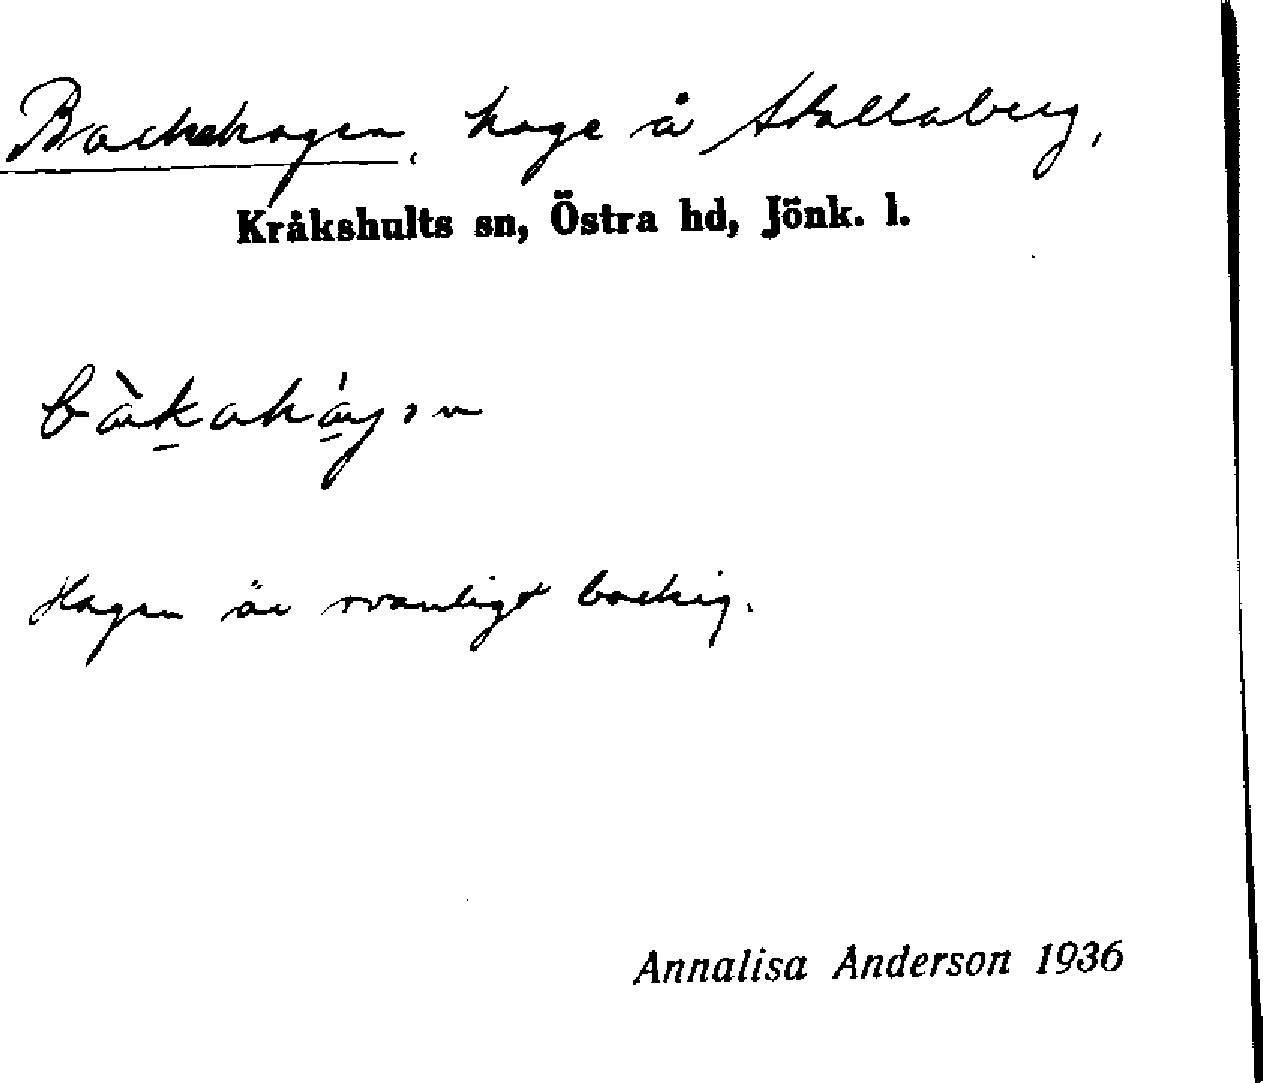 Backhagen, hage å Skallaberg,
Kråkshults sn, Östra hd, Jönk. l.
bàkahágən
Hagen är ovanligt backig.
Annalisa Anderson 1936